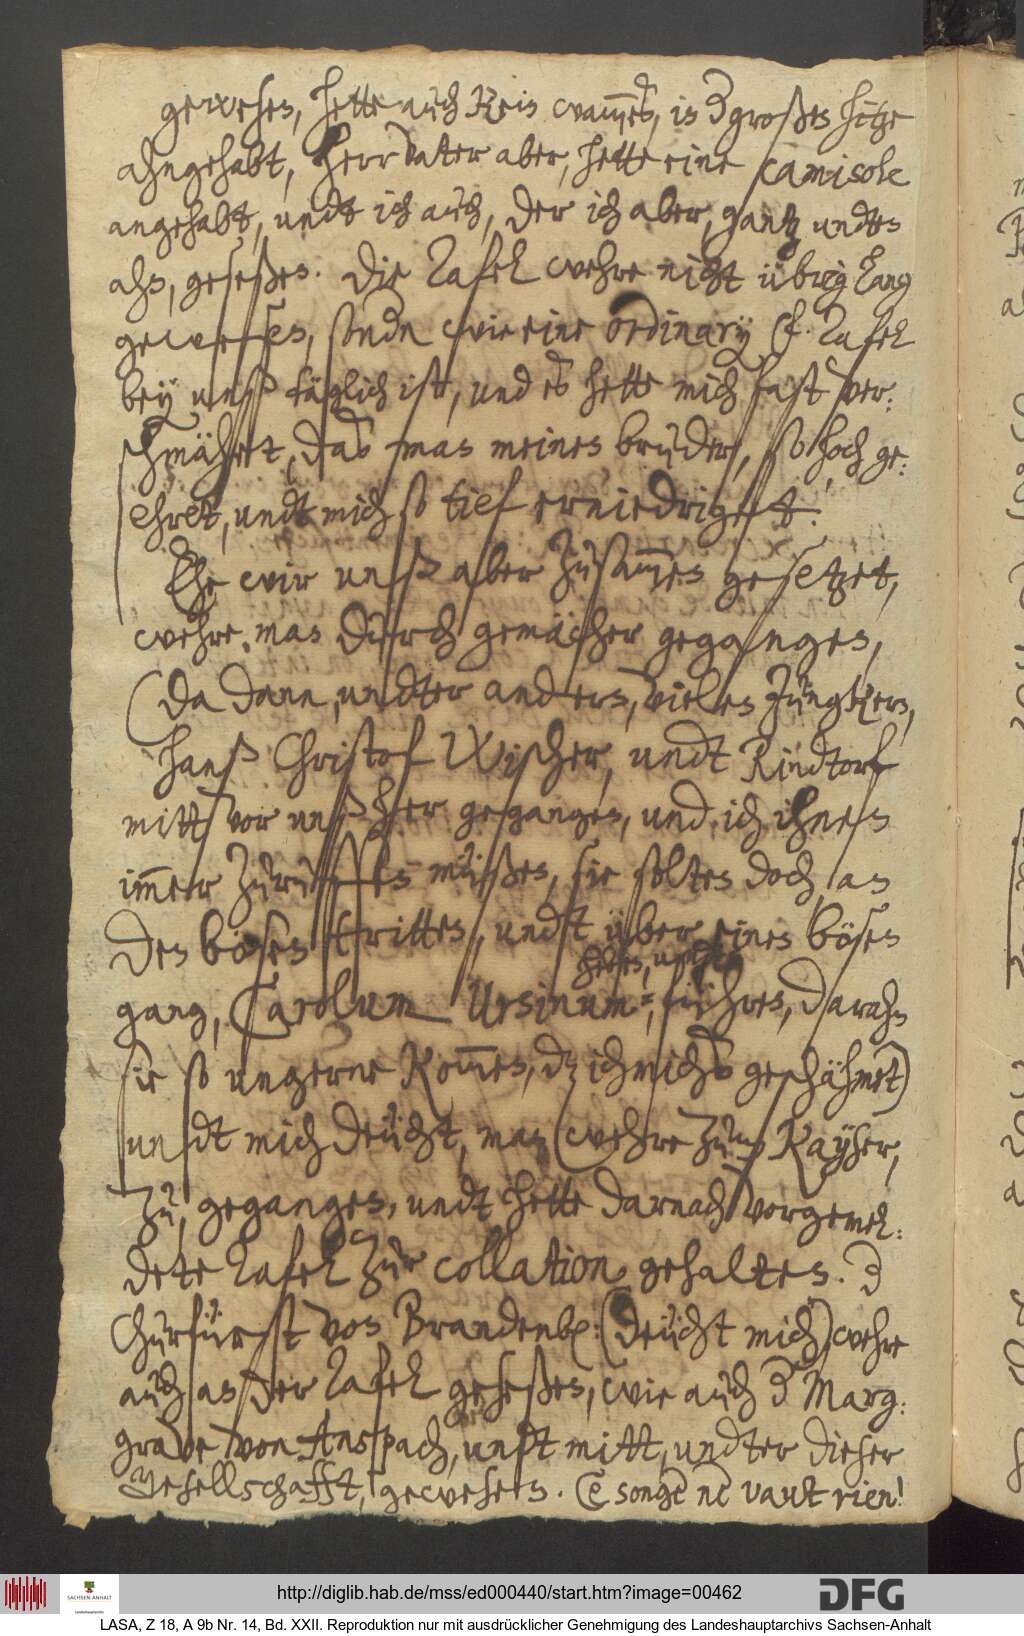 gewesen, hette auch Kein wammes, in der großen hitze
ahngehabt, Herr Vater aber, hette eine camisole
angehabt, undt ich auch, der ich aber, gantz undten
ahn, geseßen. Die Tafel wehre nicht übrig lang
gewesen, sondern wie eine ordinarÿ f. Tafel
beÿ unß täglich ist, und es hette mich fast ver:
schmähet, das man meinen bruder, so hoch ge:
ehret, undt mich so tief erniedriget.
Ehe wir unß aber Zusammen gesetzet,
wehre man durch gemächer gegangen,
(da dann, undter andern, vielen Jungkern,
Hanß Christof Wischer, undt Rindtorf
mitt vor unß her gegangen, und ich ihnen
immer Zuruffen müßen, sie solten doch, an
den bösen tritten, undt über einen bösen
helfen, undt
gang, Carolum Ursinum, führen, darahn
sie so ungerne Kommen, dz ich michs geschähmet)
undt mich deucht, man (wehre Zum Kayser,
Zu, gegangen, undt hette darnach vorgemel:
dete Tafel Zur collation gehalten. Der
Churfürst von Brandenb: (deucht mich) wehre
auch an der Tafel geseßen, wie auch der Marg:
grave von Anspach, undt mitt, undter dieser
Gesellschafft, gewesen. Ce songe ne vaut rien!
http://diglib.hab.de/mss/ed000440/start.htm?image=00462
SACHSEN-ANHALT
Landeshauptarchiv
DFG
LASA, Z 18, A 9b Nr. 14, Bd. XXII. Reproduktion nur mit ausdrücklicher Genehmigung des Landeshauptarchivs Sachsen-Anhalt